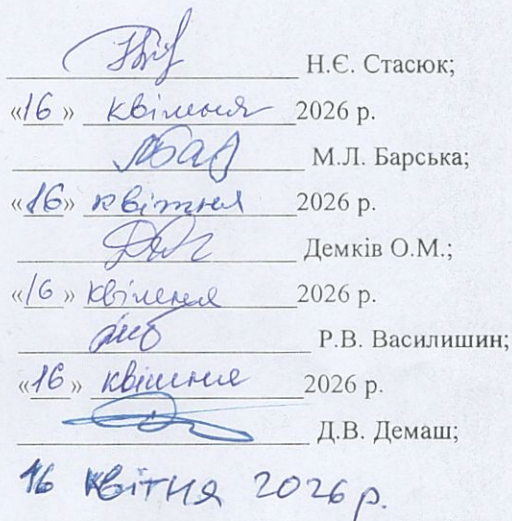 Н.Є. Стасюк;
«16» квітня 2026 р.
М.Л. Барська;
«16» квітня 2026 р.
Демків О.М.;
«16» квітня 2026 р.
Р.В. Василишин;
«16» квітня 2026 р.
Д.В. Демаш;
16 квітня 2026 р.